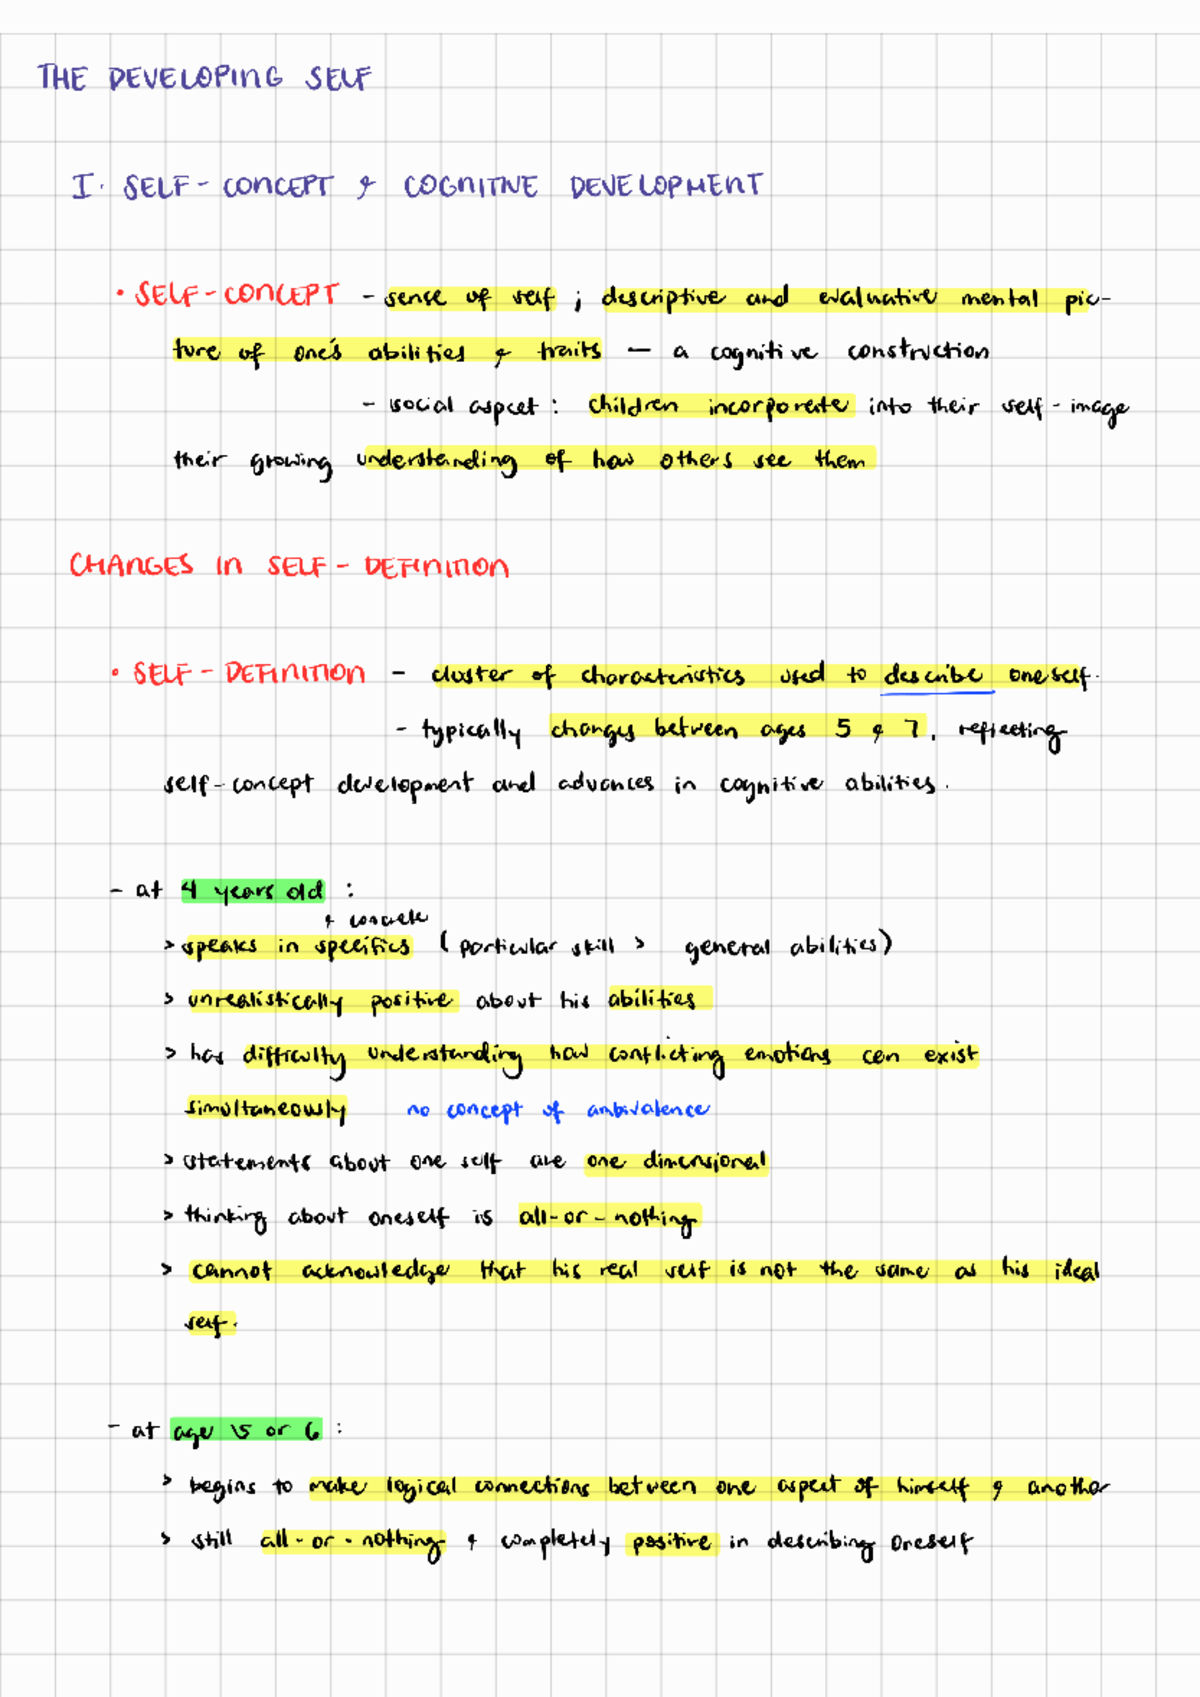 THE DEVELOPING SELF
I. SELF-CONCEPT & COGNITIVE DEVELOPMENT
• SELF-CONCEPT - sense of self ; descriptive and evaluative mental pic-
ture of one's abilities & traits — a cognitive construction
- social aspect : children incorporate into their self-image
their growing understanding of how others see them
CHANGES IN SELF-DEFINITION
• SELF-DEFINITION - cluster of characteristics used to describe oneself.
- typically changes between ages 5 & 7, reflecting
self-concept development and advances in cognitive abilities.
- at 4 years old :
& concrete
> speaks in specifics (particular skill > general abilities)
> unrealistically positive about his abilities
> has difficulty understanding how conflicting emotions can exist
simultaneously no concept of ambivalence
> statements about one self are one dimensional
> thinking about oneself is all-or-nothing
> cannot acknowledge that his real self is not the same as his ideal
self.
- at age 5 or 6 :
> begins to make logical connections between one aspect of himself & another
> still all-or-nothing & completely positive in describing oneself